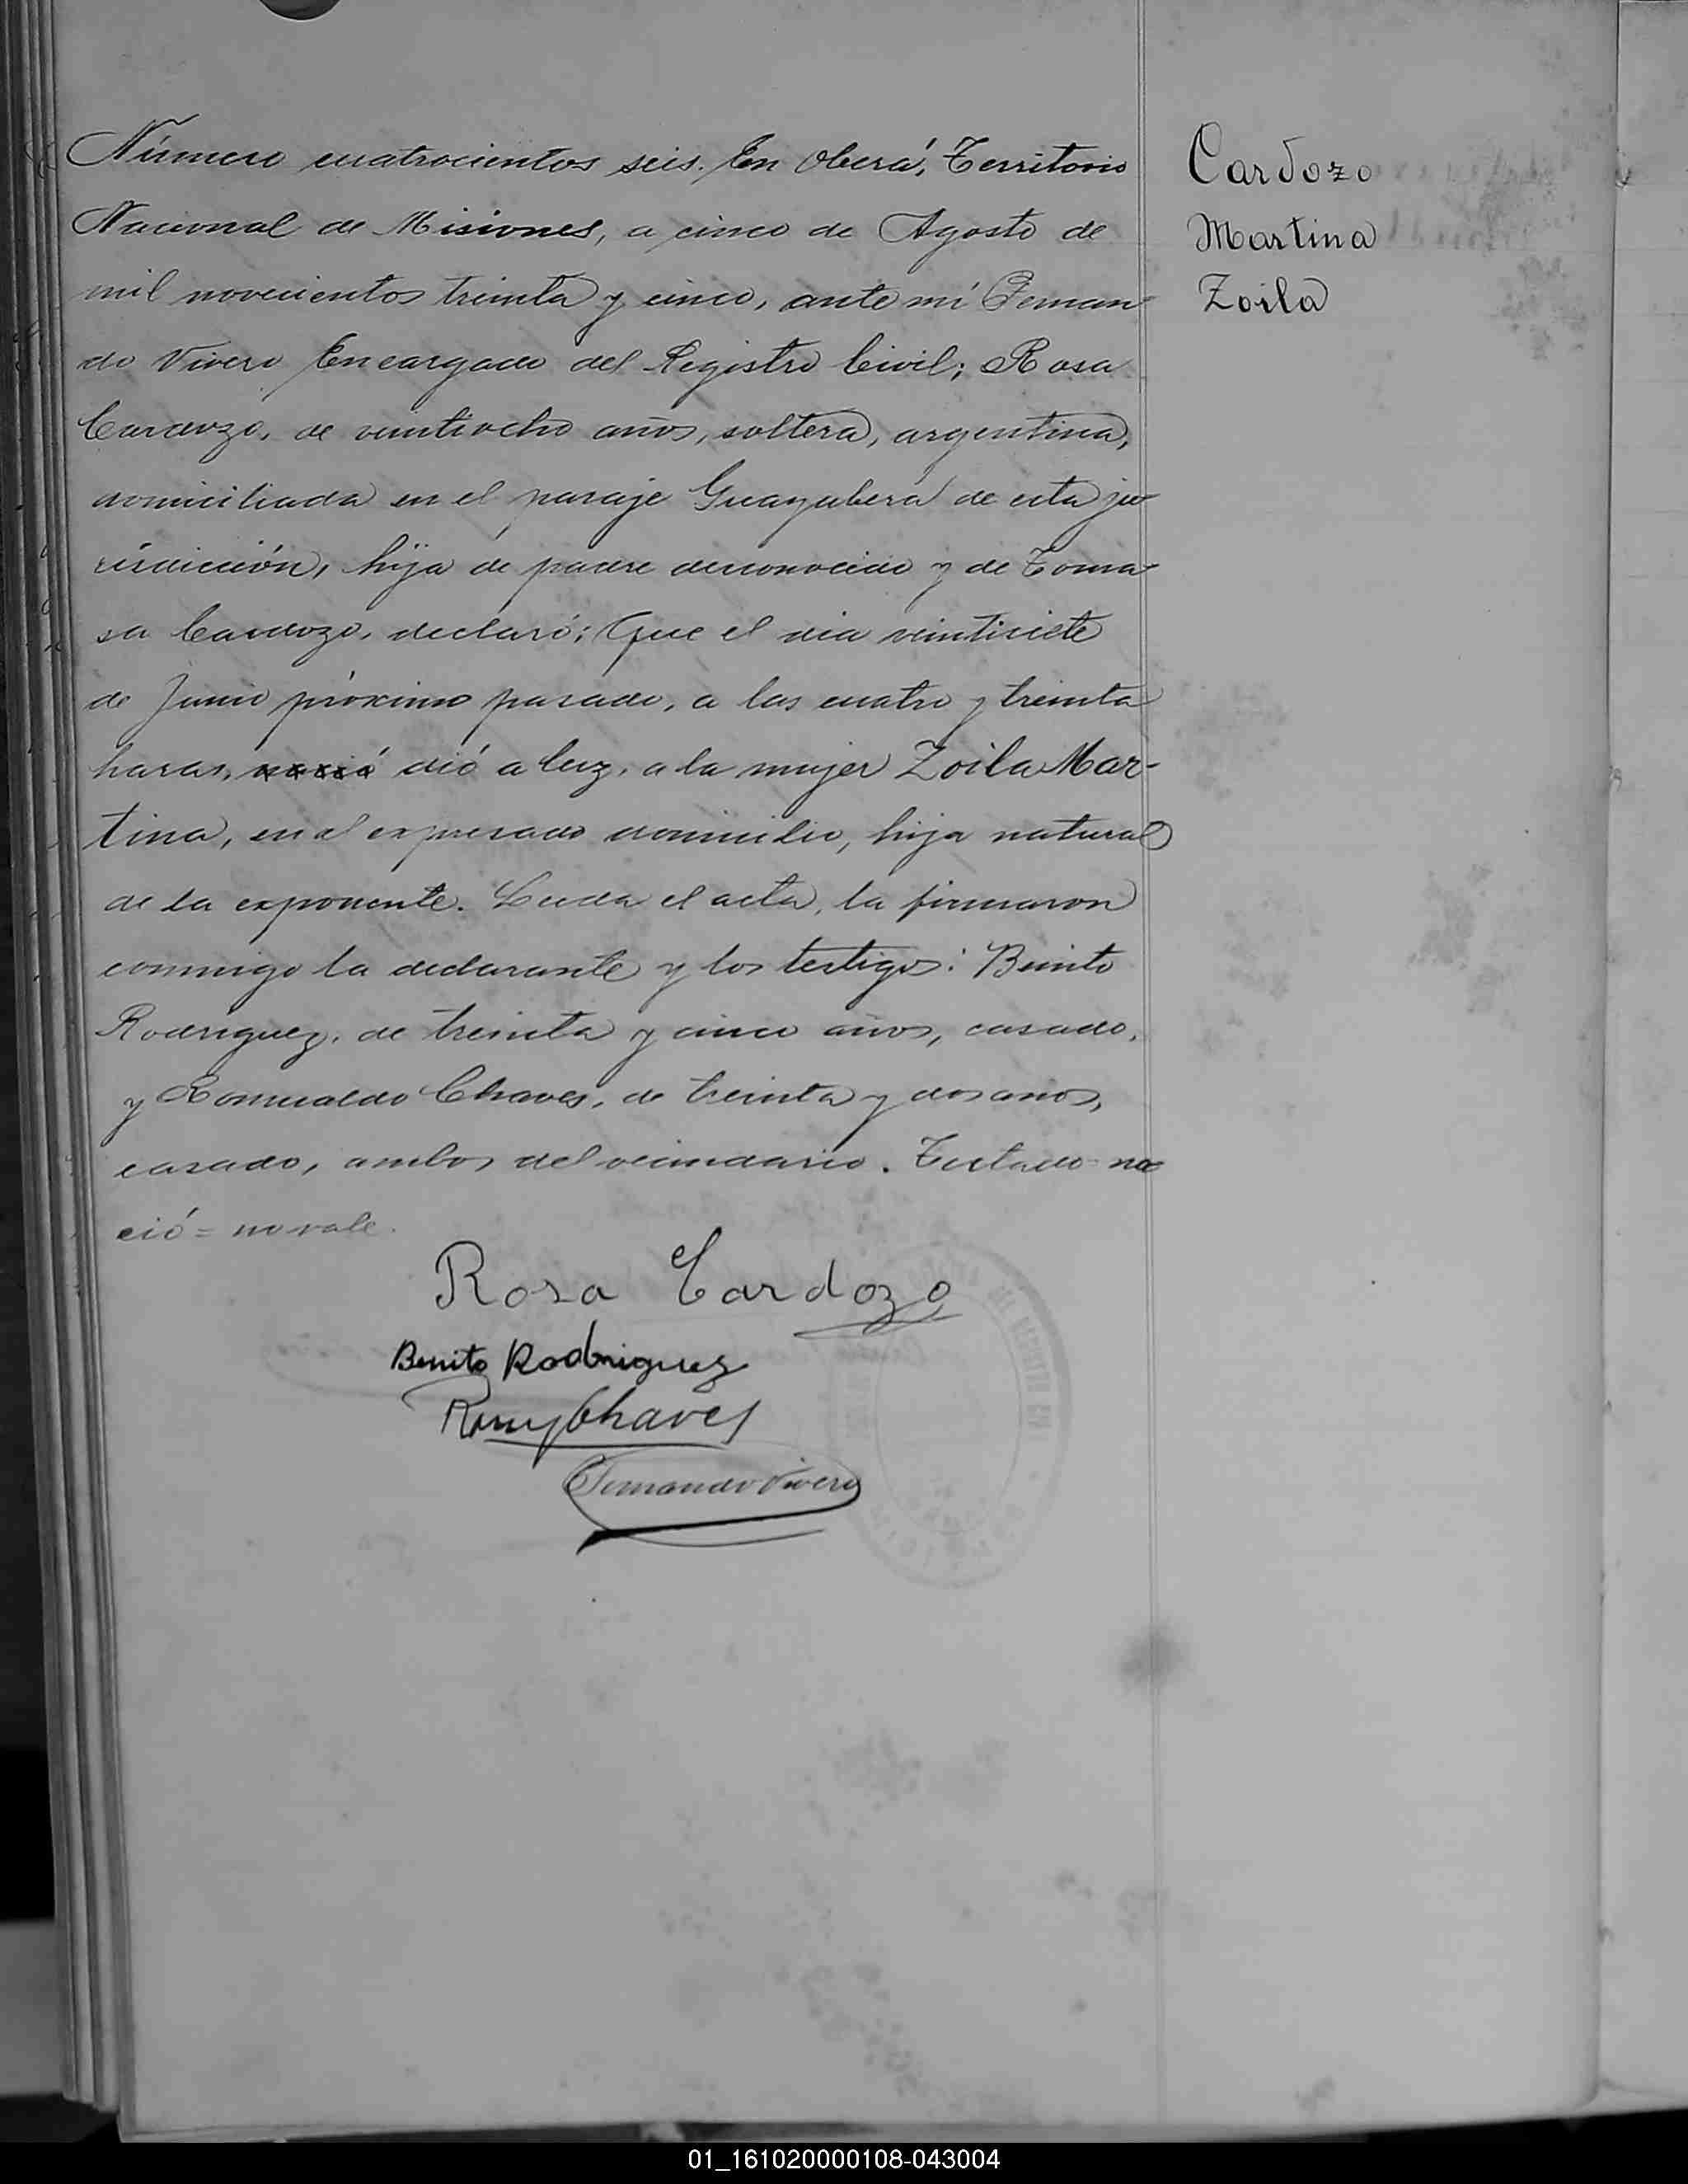 Número cuatrocientos seis. En Oberá, Territorio
Nacional de Misiones, a cinco de Agosto de
mil novecientos treinta y cinco, ante mí Fernan-
do Vivero Encargado del Registro Civil; Rosa
Cardozo, de veintiocho años, soltera, argentina,
domiciliada en el paraje Guayubera de esta ju-
risdicción, hija de padre desconocido y de Toma-
sa Cardozo, declaró: Que el dia veintisiete
de Junio próximo pasado, a las cuatro y treinta
horas, nació dió a luz, a la mujer Zoila Mar-
tina, en el expresado domicilio, hija natural
de la exponente. Leida el acta, la firmaron
conmigo la declarante y los testigos: Benito
Rodriguez, de treinta y cinco años, casado,
y Romualdo Chaves, de treinta y dos años,
casado, ambos del vecindario. Testado=na
ció=no vale.
Rosa Cardozo
Benito Rodriguez
Chaves
Fernando Vivero
Cardozo
Martina
Zoila
01_161020000108-043004